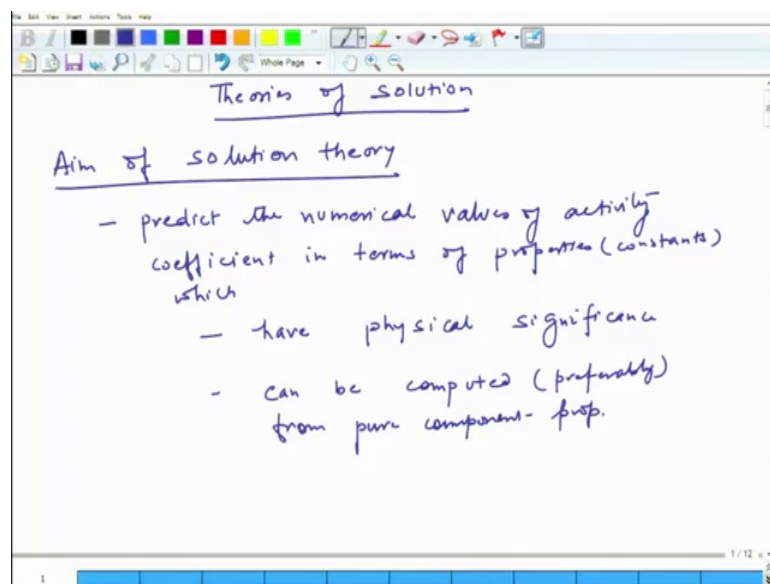 File Edit View Insert Actions Tools Help
B I
Whole Page
Theories of solution
Aim of solution theory
- predict the numerical values of activity
coefficient in terms of properties (constants)
which
- have physical significance
- can be computed (preferably)
from pure component- prop.
1 / 12
1